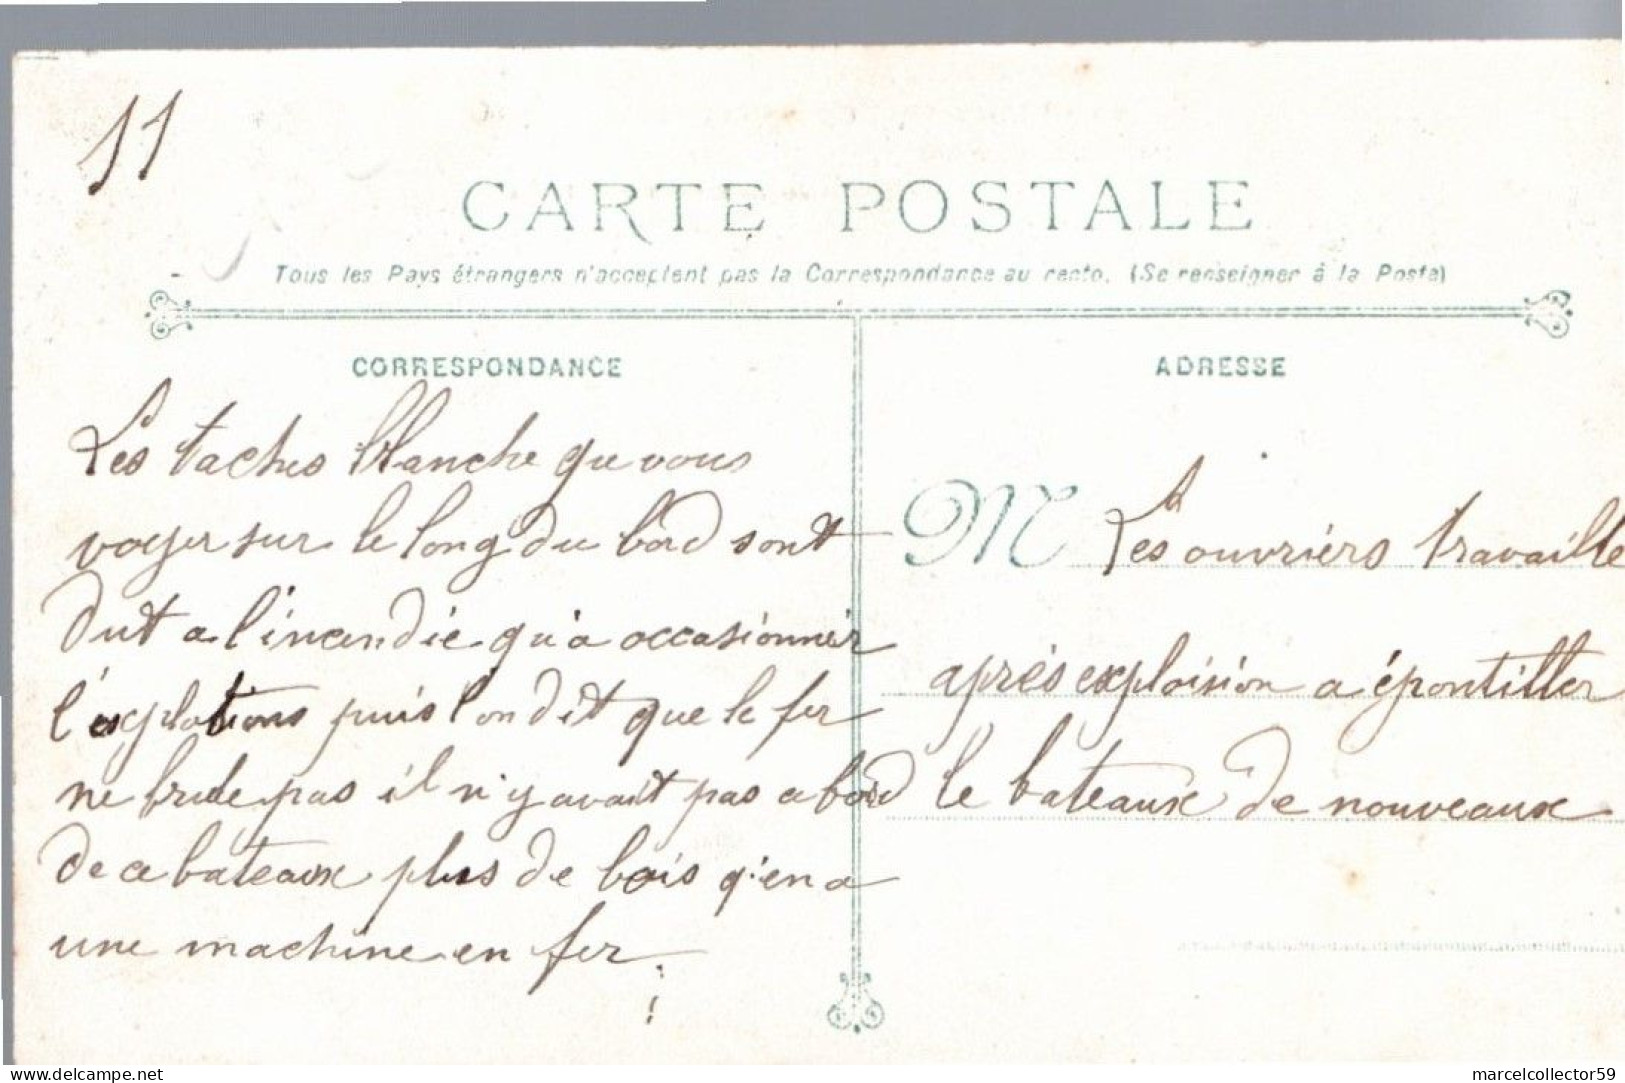 11
CARTE POSTALE
Tous les Pays étrangers n'acceptent pas la Correspondance au recto. (Se renseigner à la Poste)
CORRESPONDANCE
Les taches blanche que vous
voyer sur le long du bord sont
dut a l'incendie qu'a occasionnér
l'explotions puis l'on dit que le fer
ne brule pas il n'y avait pas a bord
de ce bateaux plus de bois q'en a
une machine en fer
!
ADRESSE
M Les ouvriérs travaille
aprés exploision a épontiller
le bateaux de nouveaux
delcampe.net
marcelcollector59